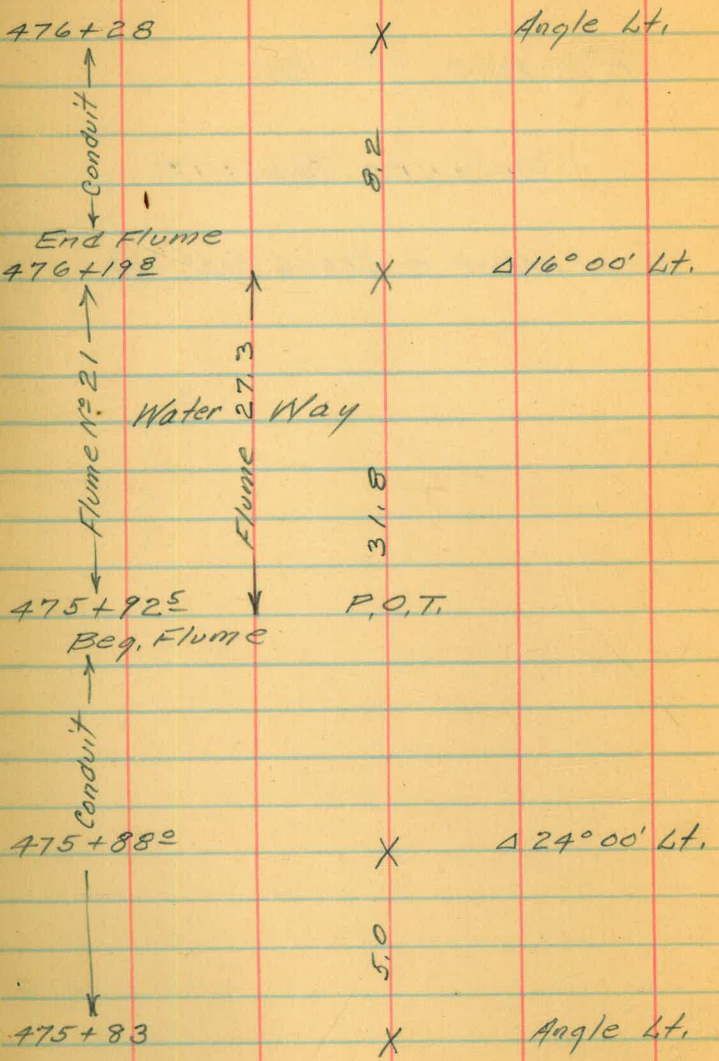 476+28 X Angle Lt.
Conduit
8.2
End Flume
476+19⁸ X Δ 16° 00' Lt.
Flume Nº 21
Flume 27.3
Water Way
31.8
475+92⁵ P.O.T.
Beg. Flume
Conduit
475+88⁰ X Δ 24° 00' Lt.
5.0
475+83 X Angle Lt.